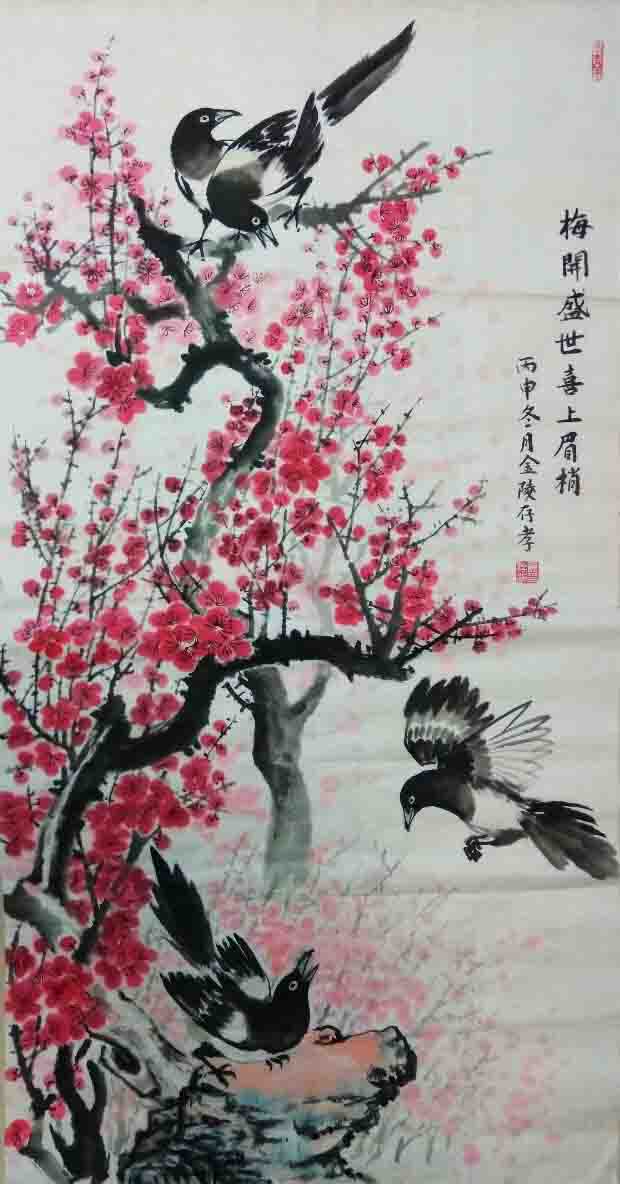 梅開盛世喜上眉梢
丙申冬月金陵存孝